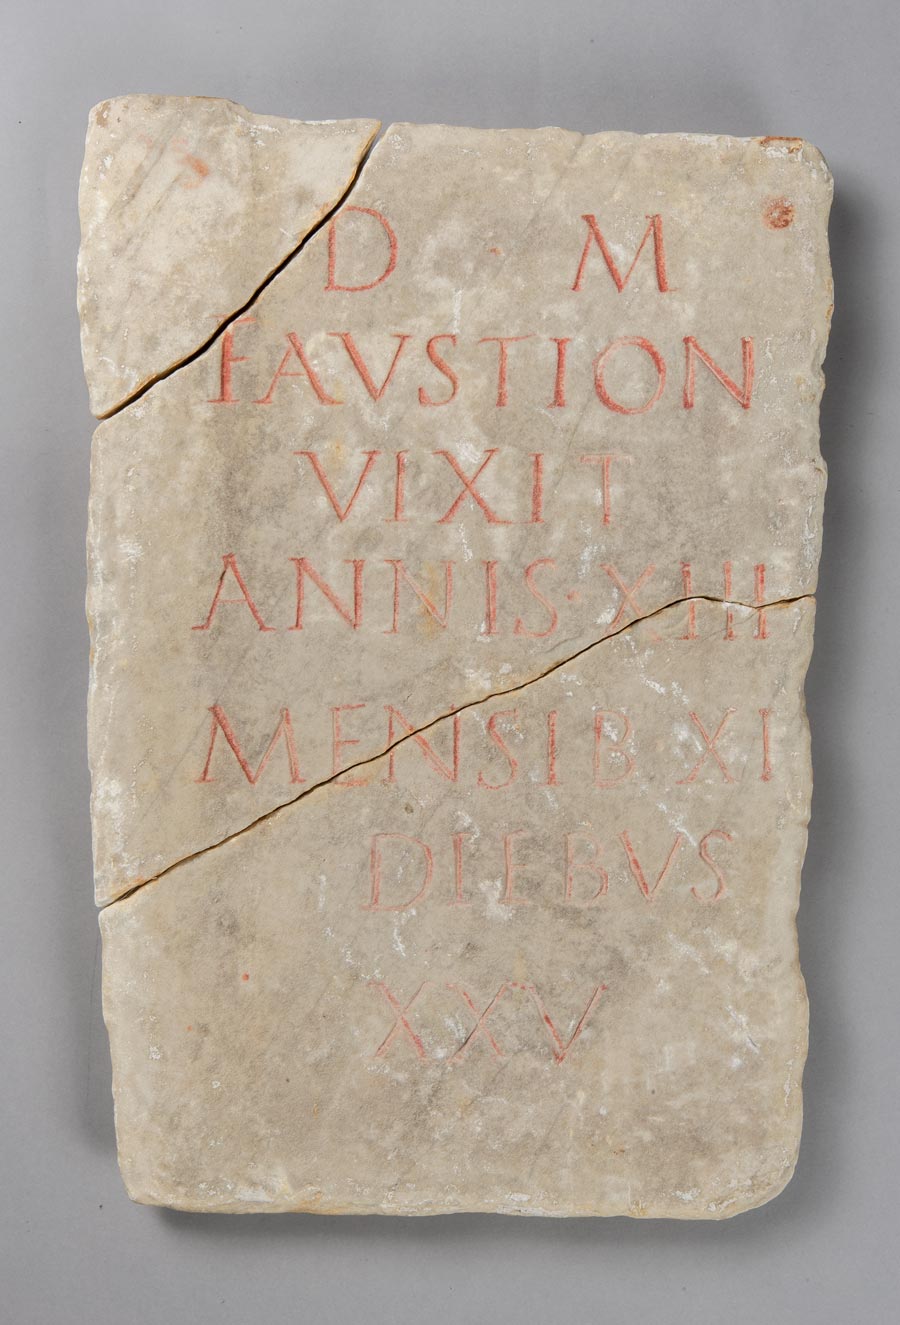 D · M
FAVSTION
VIXIT
ANNIS · XIII
MENSIB XI
DIEBVS
XXV